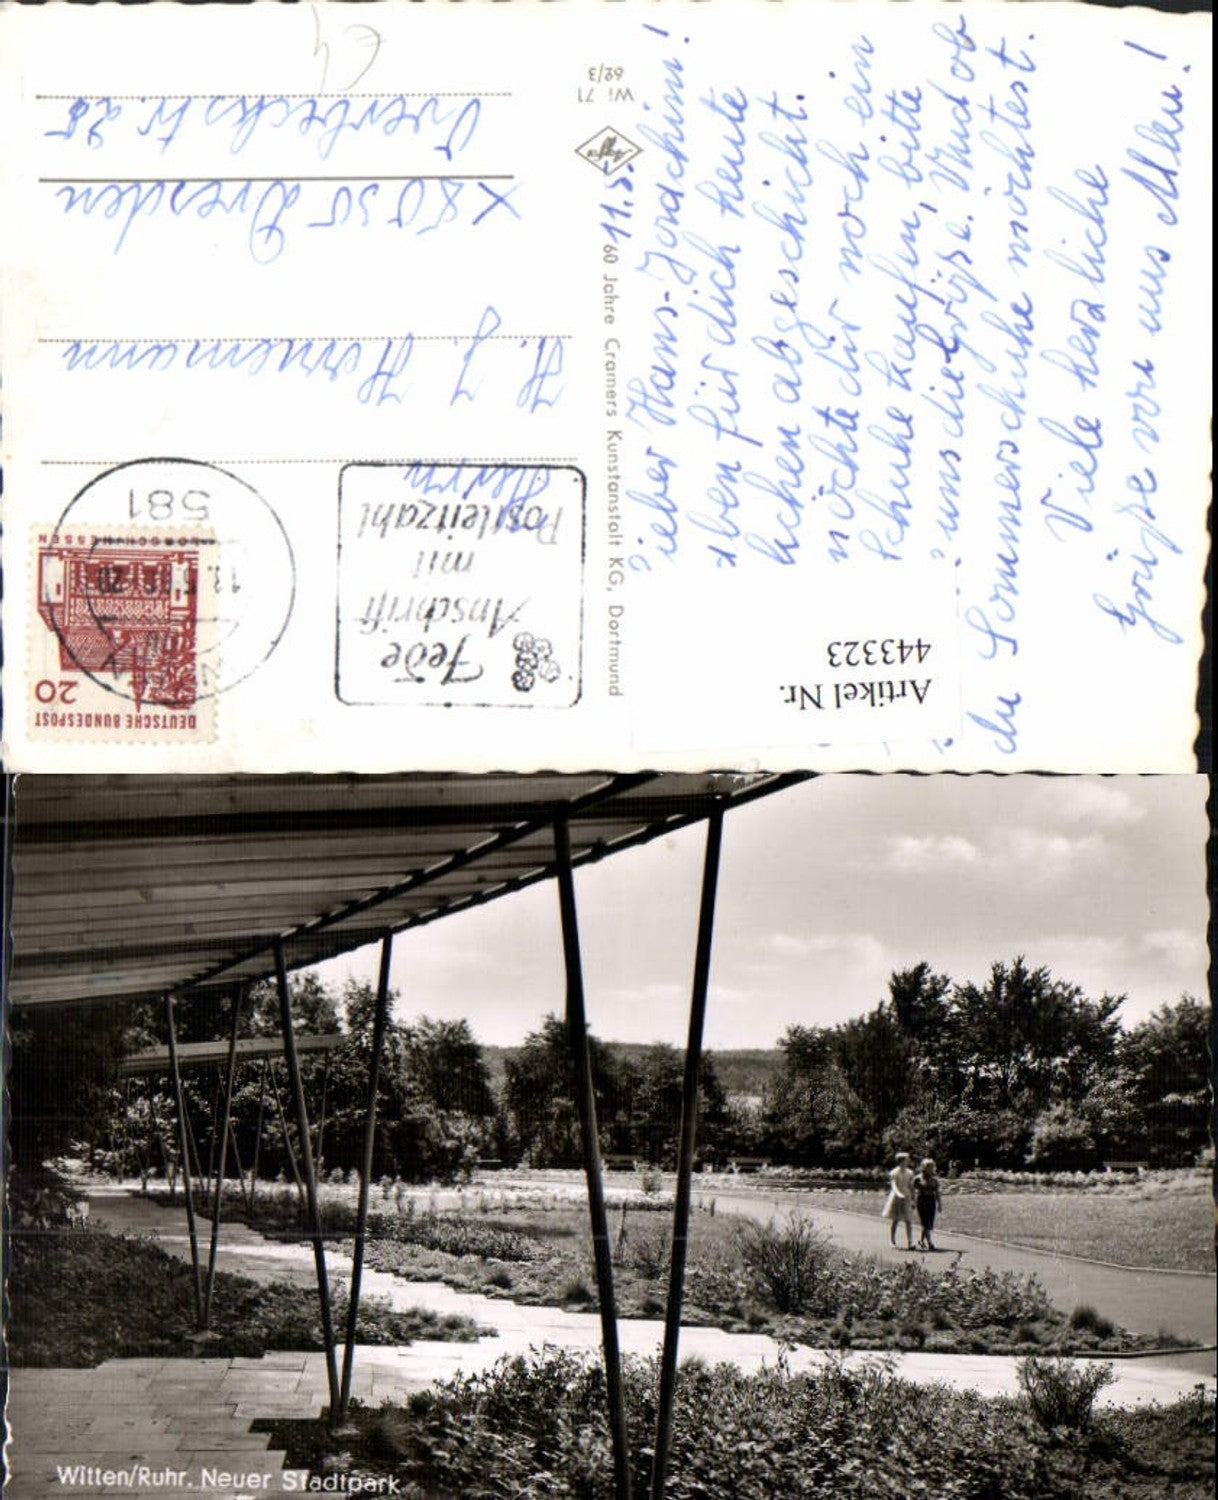 DEUTSCHE BUNDESPOST
20
LORSCH/HESSEN
581
WITTEN
Jede
Anschrift
mit
Postleitzahl
Herrn
H. J. Hornemann
X 8030 Dresden
Overbeckstr. 25
€4
Wi 71
62/3
Agfa
60 Jahre Cramers Kunstanstalt KG, Dortmund
11.5.
Lieber Hans-Joachim!
eben für dich heute
chen abgeschickt.
möchte dir noch ein
Schuhe kaufen, bitte
uns die Größe. Und ob
du Sommerschuhe möchtest.
Viele herzliche
Grüße von uns Allen!
Artikel Nr.
443323
Witten/Ruhr. Neuer Stadtpark